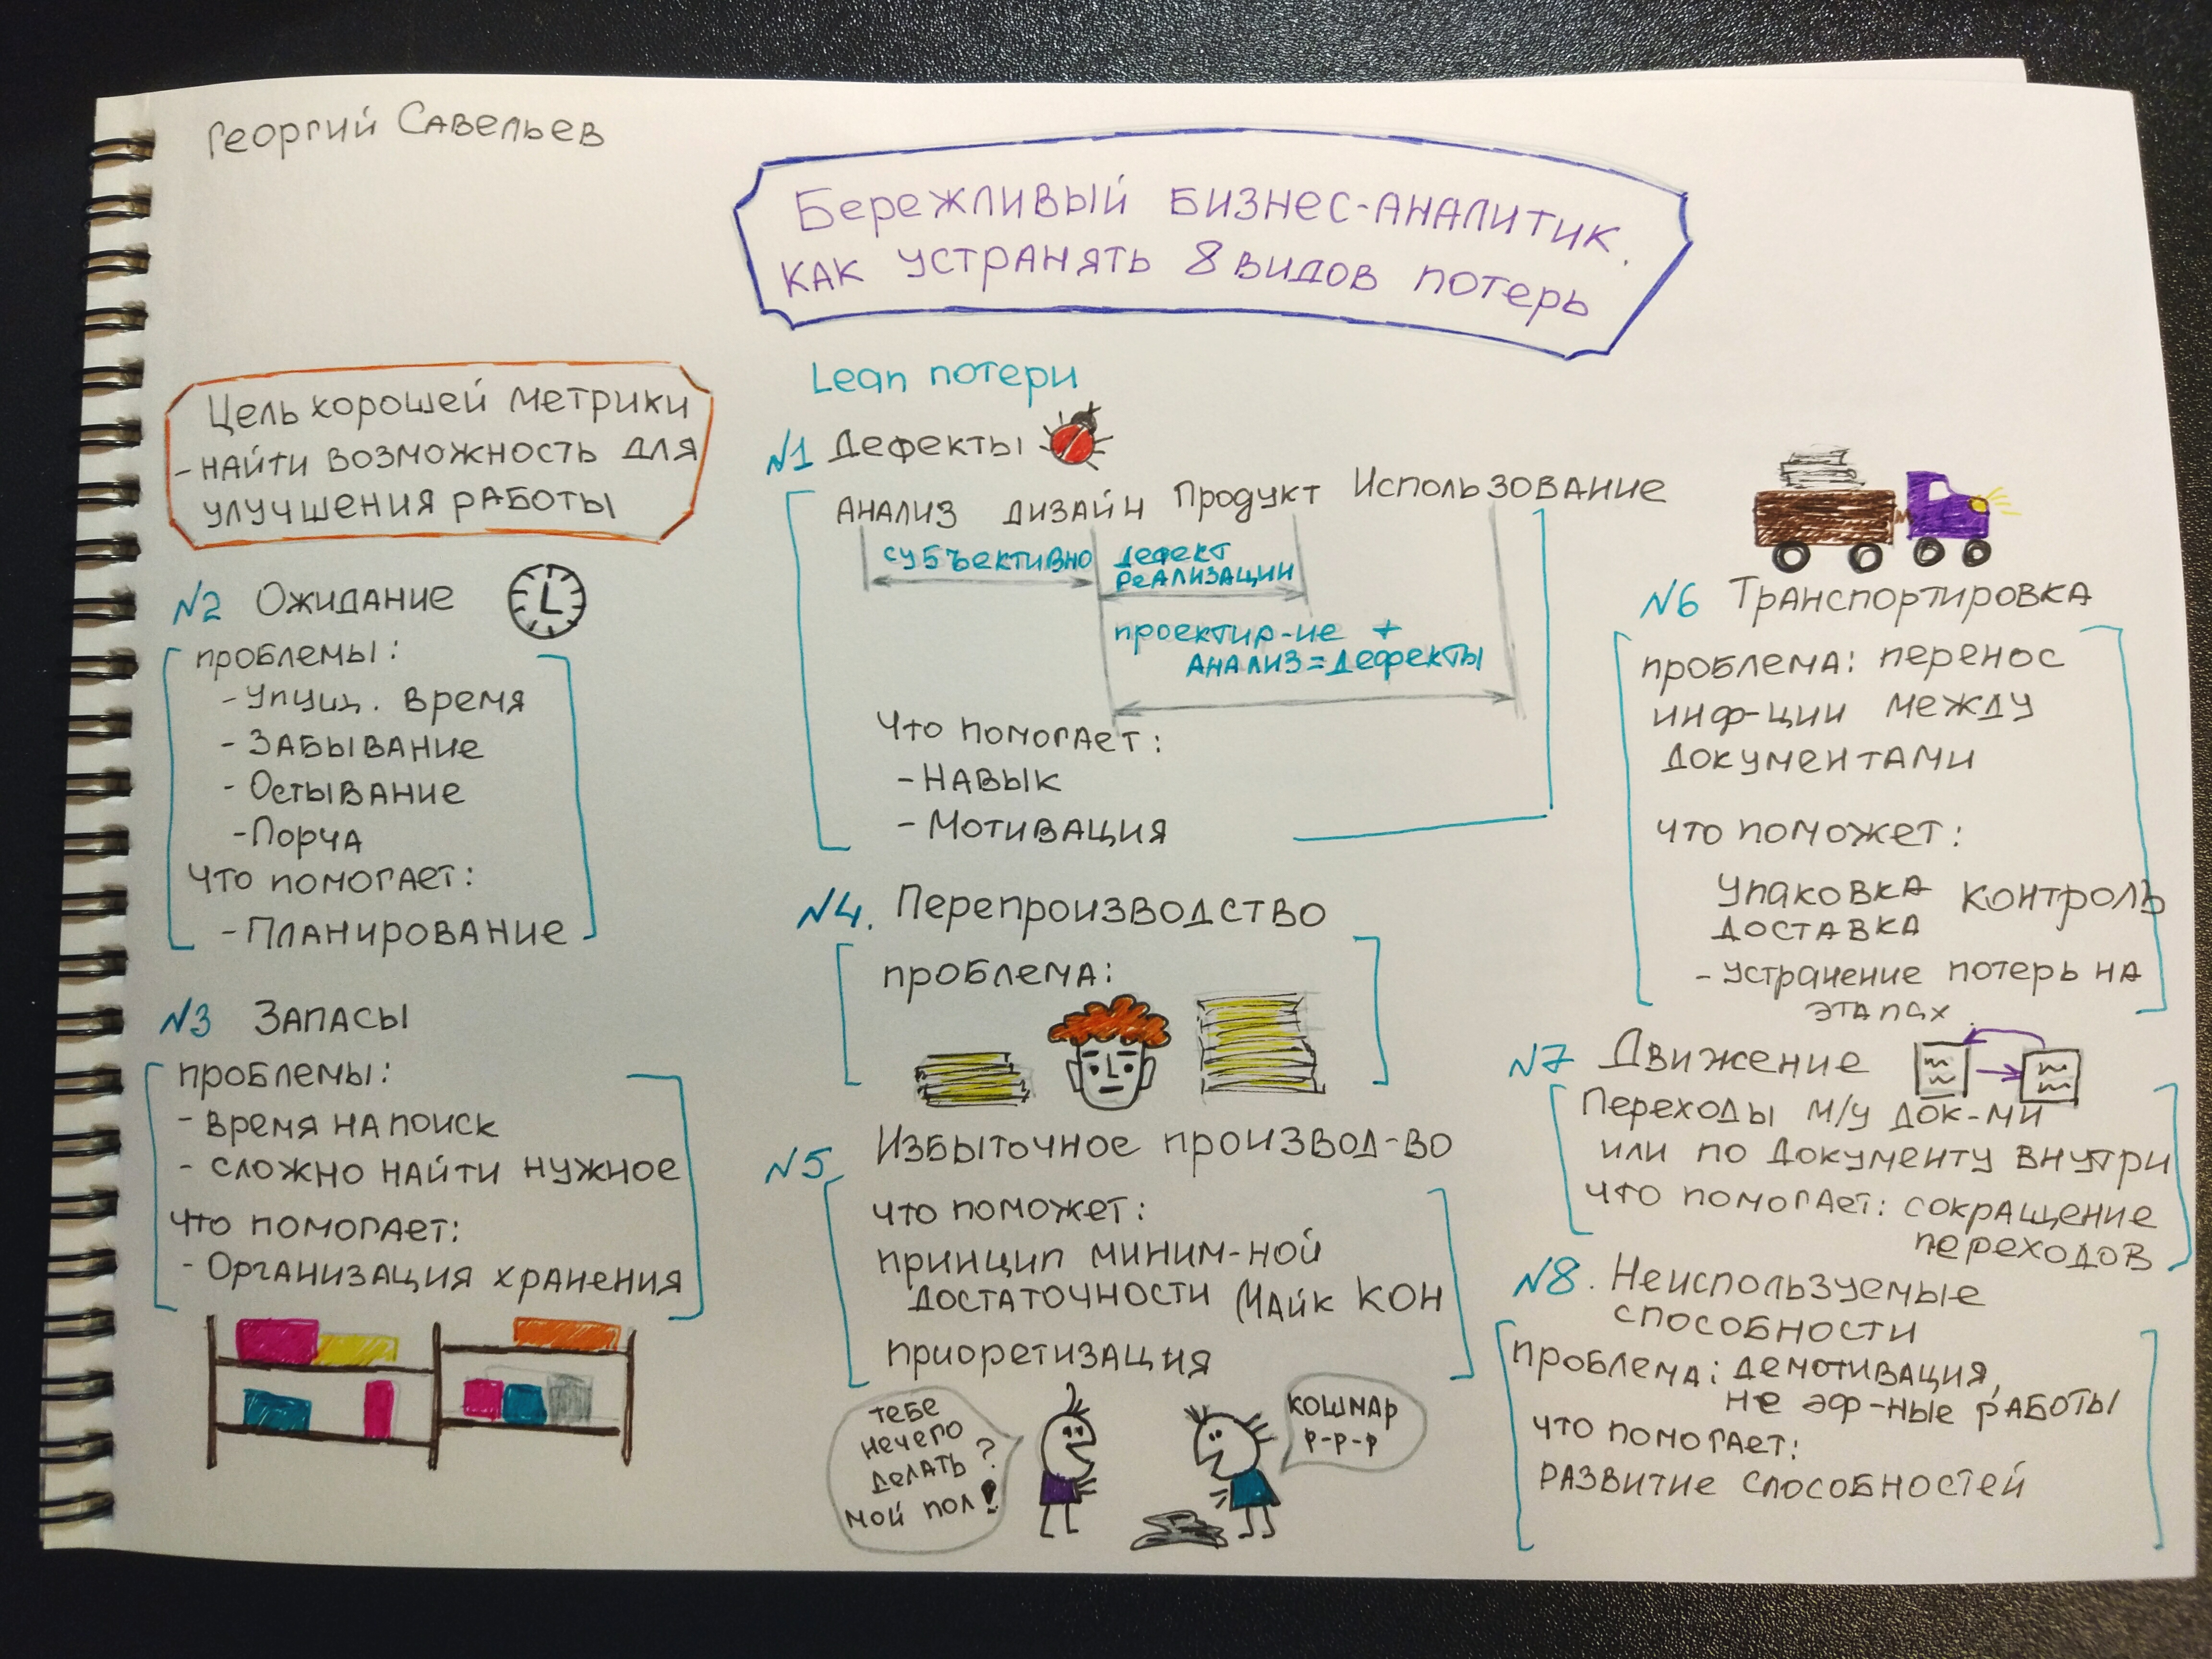 Георгий Савельев
Бережливый бизнес-аналитик.
как устранять 8 видов потерь
Цель хорошей метрики
- найти возможность для
улучшения работы
Lean потери
№1 Дефекты
Анализ дизайн Продукт Использование
субъективно
дефект
реализации
проектир-ие +
анализ = дефекты
Что помогает:
- Навык
- Мотивация
№2 Ожидание
проблемы:
- Упущ. время
- Забывание
- Остывание
- Порча
Что помогает:
- Планирование
№3 Запасы
проблемы:
- время на поиск
- сложно найти нужное
Что помогает:
- Организация хранения
№4. Перепроизводство
проблема:
№5 Избыточное производ-во
что поможет:
принцип миним-ной
достаточности (Майк Кон
приоретизация
тебе
нечего
делать?
мой пол!
кошмар
р-р-р
№6 Транспортировка
проблема: перенос
инф-ции между
документами
что поможет:
упаковка контроль
доставка
- устранение потерь на
этапах
№7 Движение
Переходы м/у док-ми
или по документу внутри
что помогает: сокращение
переходов
№8. Неиспользуемые
способности
проблема: демотивация,
не эф-ные работы
что помогает:
развитие способностей